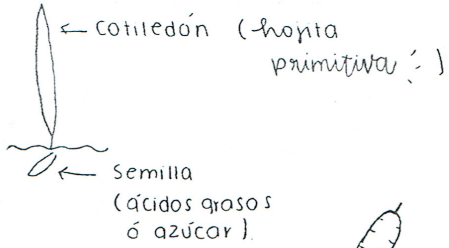 cotiledón (hojita
primitiva :)
Semilla
(ácidos grasos
ó azúcar).